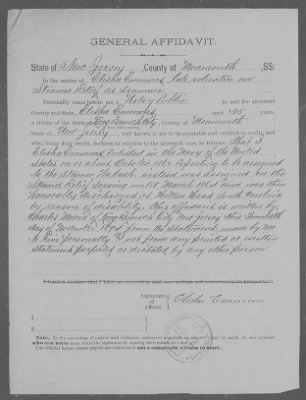 GENERAL AFFIDAVIT.
State of New Jersey, County of Monmouth, SS:
In the matter of Elisha Emmons late volunteer on
Steamer Relief as Seaman
Personally came before me a Notary Public in and for aforesaid
County and State Elisha Emmons aged 55 years
a citizen of the town of Long Branch City, County of Monmouth
State of New Jersey, well known to me to be reputable and entitled to credit, and
who, being duly sworn, declares in relation to the aforesaid case, as follows: That I
Elisha Emmons Enlisted in the Navy of the United
States on or about Oct 1862 Expecting to be assigned
to the Steamer Wabash instead was assigned on the
Steamer Relief Serving until March 1864 and was then
honorably discharged at Hilton Head South Carolina
by reason of disability. This affidavit is written by
Charles Morris of Long Branch City New Jersey this
day of 1895 from the Statement made by me
to him personally & not from any printed or written
Statement prepared or dictated by any other person
Signature
of
Affiant.
Elisha Emmons
Note. In the execution of papers and evidence, whenever a person or witness signs by mark (X), two persons
who can write must attest the signature by signing their names